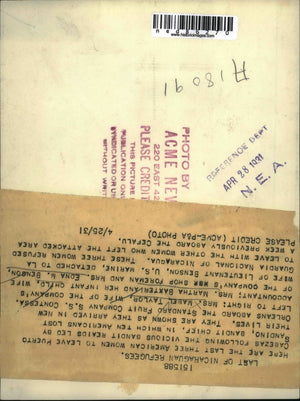 www.historicimages.com
A18091
PHOTO BY
ACME NEW
220 EAST 42
PLEASE CREDIT
THIS PICTURE
PUBLICATION ONL
SYNDICATED OR U
WITHOUT WRIT
REFERENCE DEPT
APR 28 1931
N.E.A.
151588
LAST OF NICARAGUAN REFUGEES.
HERE ARE THE LAST THREE AMERICAN WOMEN TO LEAVE PUERTO
CABEZAS FOLLOWING THE VICIOUS BANDIT RAIDS LED BY
SANDINO, BANDIT CHIEF, IN WHICH TEN AMERICANS LOST
THEIR LIVES. THEY ARE SHOWN AS THEY ARRIVED IN NEW
ORLEANS ABOARD THE STANDARD FRUIT COMPANY'S S.S. CONTESSA.
LEFT TO RIGHT: MRS. MABEL TAYLOR, WIFE OF THE COMPANY'S
ACCOUNTANT; MRS. MARTHA BAKER AND HER INFANT CHILD, WIFE
OF THE COMPANY'S SHOP FOREMAN MRS. EDNA W. BENSON,
WIFE OF LIEUTENANT BENSON, U.S. MARINE, DETACHED TO LA
GUARDIA NACIONAL OF NICARAGUA. THESE THREE WOMEN REFUSED
TO LEAVE WITH THE OTHER WOMEN WHO LEFT THE ATTACKED AREA
A WEEK PREVIOUSLY ABOARD THE CEFALU.
PLEASE CREDIT (ACME-P&A PHOTO) 4/25/31